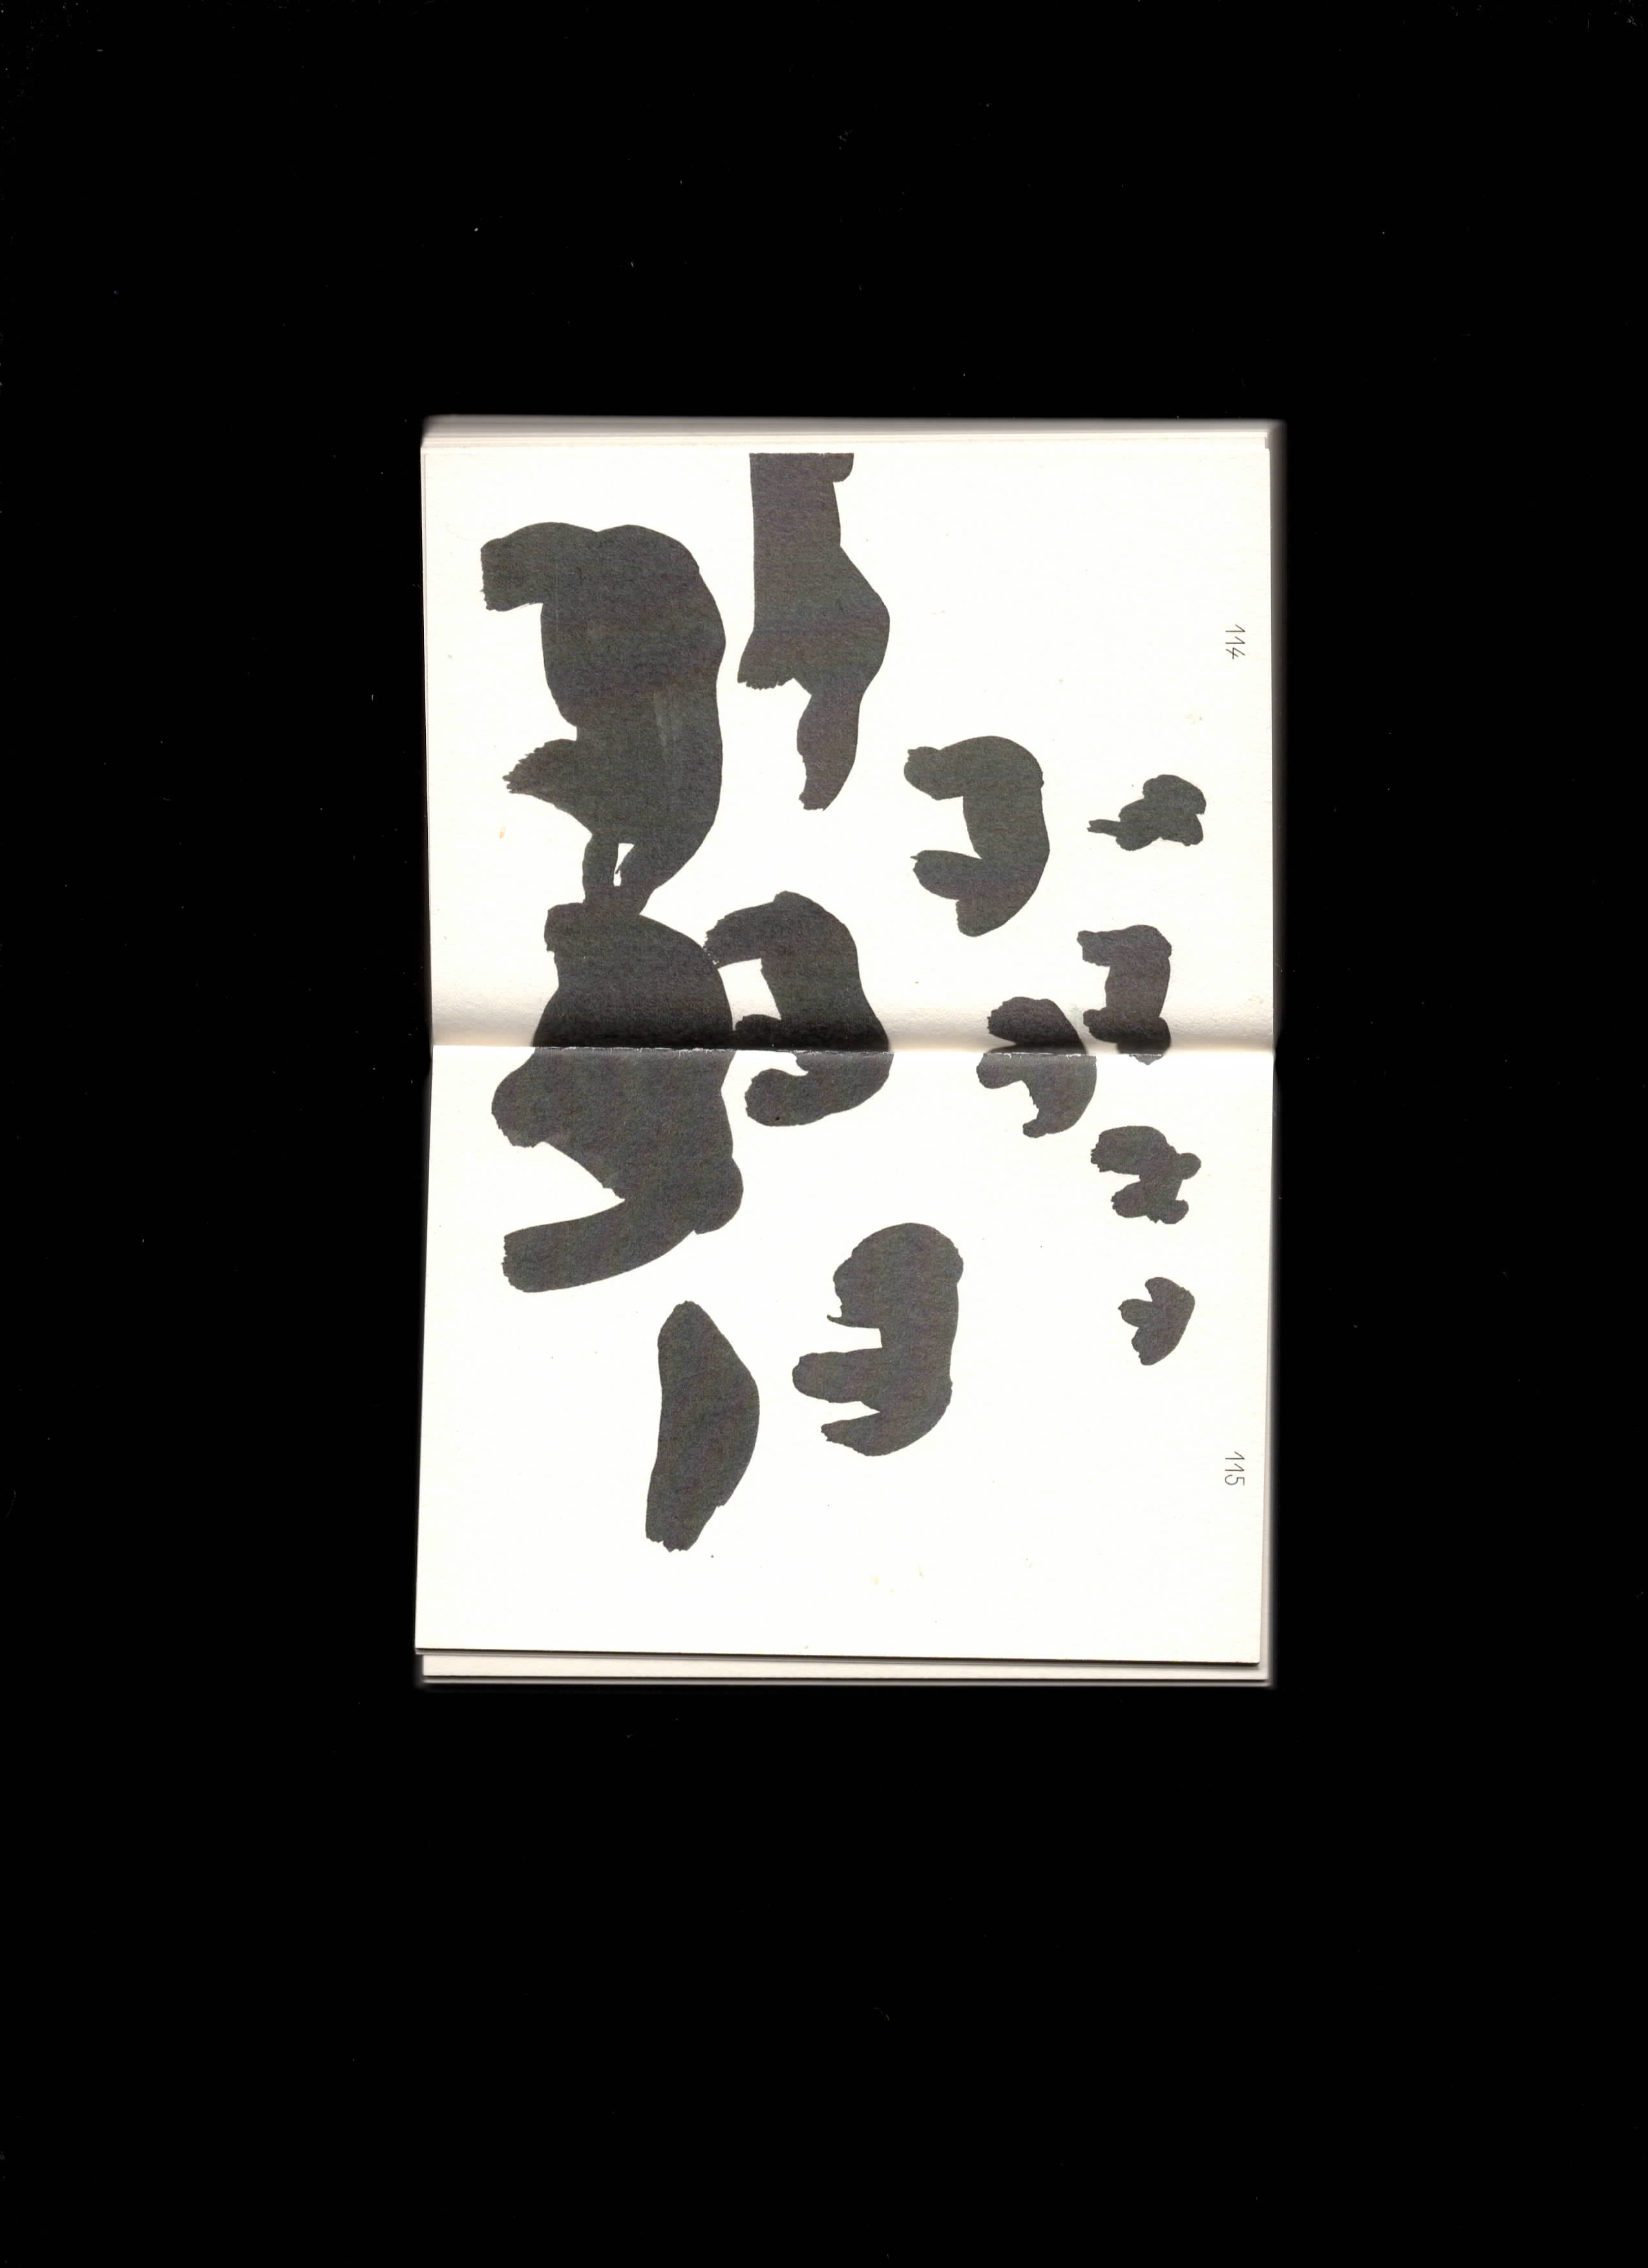 114
115